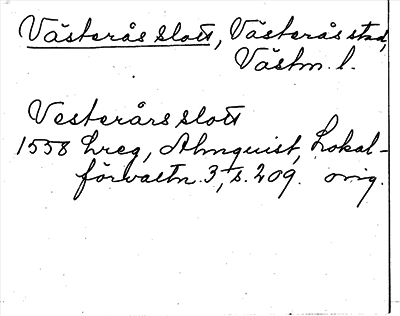 Västerås slott, Västerås stad,
Västm. l.
Vesterårs slott
1558 Lreg, Almquist, Lokal-
förvaltn. 3, s. 209. orig.